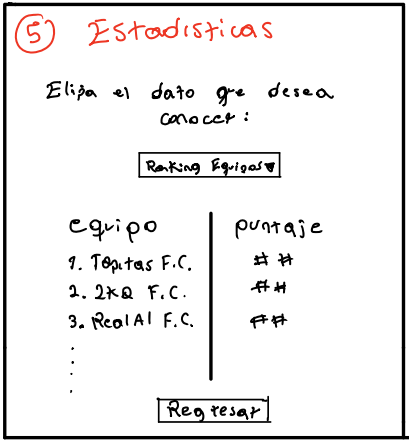 5 Estadisticas
Elija el dato que desea
conocer:
Ranking Equipos
equipo puntaje
1. Topitas F.C. ##
2. 2KQ F.C. ##
3. Real Al F.C. ##
Regresar